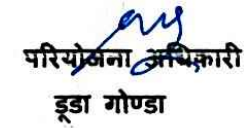 परियोजना अधिकारी
डूडा गोण्डा